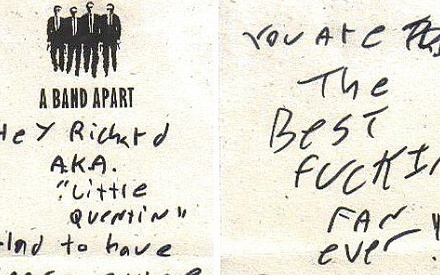 A BAND APART
Hey Richard
A.K.A.
"Little
Quentin"
Glad to have
You Are
The
Best
FUCKIN
FAN
ever"